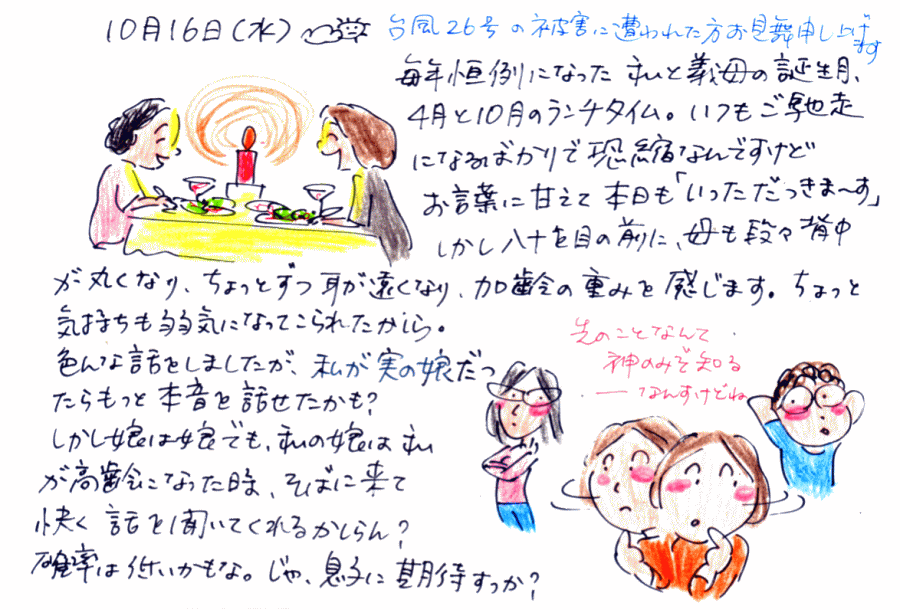 10月16日(水)
台風26号の被害に遭われた方お見舞申し上げます
毎年恒例になった私と義母の誕生月、
4月と10月のランチタイム。いつもご馳走
になるばかりで恐縮なんですけど
お言葉に甘えて本日も「いっただっきま〜す」
しかし八十を目の前に、母も段々背中
が丸くなり、ちょっとずつ耳が遠くなり、加齢の重みを感じます。ちょっと
気持ちも弱気になってこられたかしら。
色んな話をしましたが、私が実の娘だっ
たらもっと本音を話せたかも?
しかし娘は娘でも、私の娘は私
が高齢になった時、そばに来て
快く話を聞いてくれるかしらん?
確率は低いかもな。じゃ、息子に期待すっか?
先のことなんて
神のみぞ知る
——なんすけどね